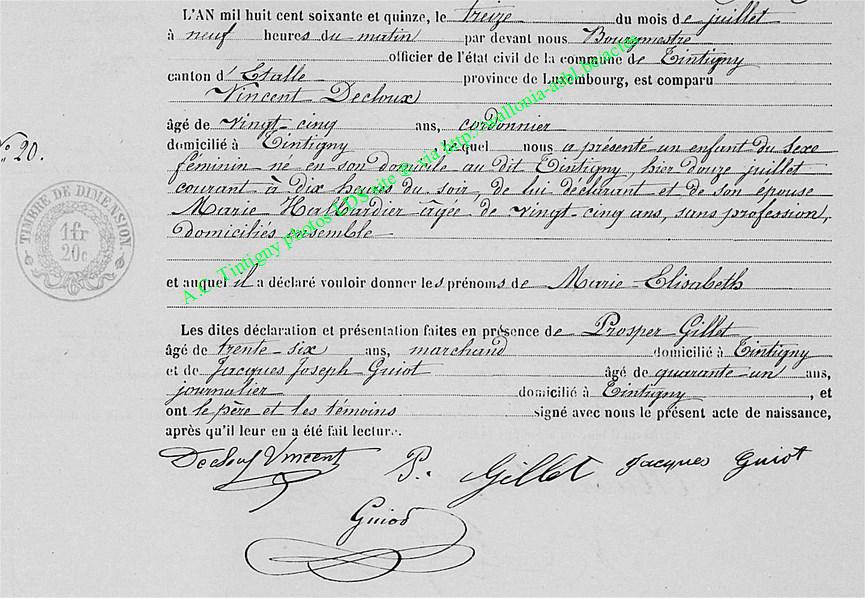 L'AN mil huit cent soixante et quinze, le treize du mois de juillet
à neuf heures du matin par devant nous Bourgmestre
officier de l'état civil de la commune de Tintigny
canton d'Etalle province de Luxembourg, est comparu
Vincent Decloux
âgé de vingt-cinq ans, cordonnier
domicilié à Tintigny, lequel nous a présenté un enfant du sexe
N° 20.
féminin né en son domicile au dit Tintigny, hier douze juillet
courant à dix heures du soir, de lui déclarant et de son épouse
Marie Hallbardier âgée de vingt-cinq ans, sans profession,
domiciliés ensemble
TIMBRE DE DIMENSION.
1fr
20c
et auquel il a déclaré vouloir donner les prénoms de Marie-Elisabeth
Les dites déclaration et présentation faites en présence de Prosper Gillet
âgé de trente-six ans, marchand domicilié à Tintigny
et de Jacques Joseph Guiot âgé de quarante-un ans,
journalier domicilié à Tintigny, et
ont le père et les témoins signé avec nous le présent acte de naissance,
après qu'il leur en a été fait lecture.
Vincent P. Gillet Jacques Guiot
Guiod
A.C. Tintigny photos via http://wallonia-asbl.be/actes